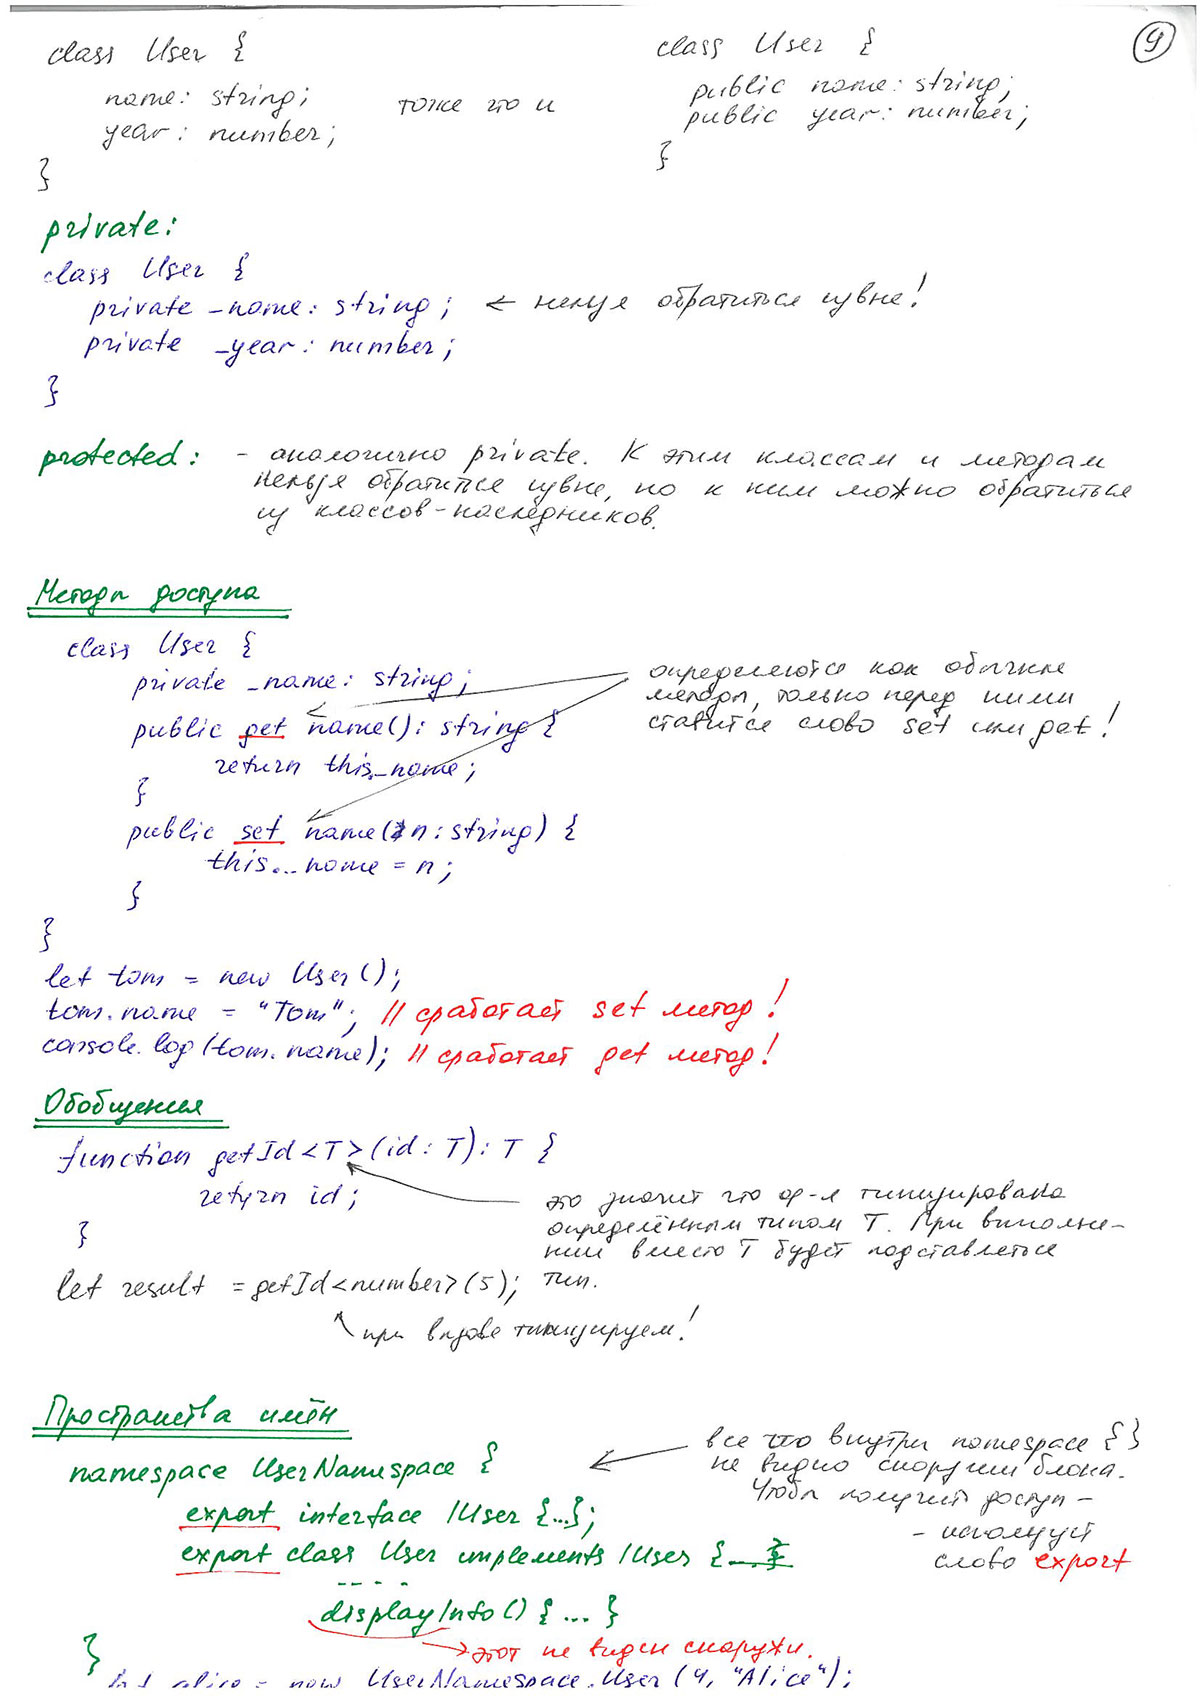 9
class User {
name: string;
year: number;
}
тоже что и
class User {
public name: string;
public year: number;
}
private:
class User {
private _name: string; ← нельзя обратиться извне!
private _year: number;
}
protected: - аналогично private. К этим классам и методам
нельзя обратится извне, но к ним можно обратиться
из классов-наследников.
Методы доступа
class User {
private _name: string;
public get name(): string {
return this._name;
}
public set name(n: string) {
this._name = n;
}
}
определяются как обычные
методы, только перед ними
ставится слово set или get!
let tom = new User();
tom.name = "Tom"; // сработает set метод!
console.log(tom.name); // сработает get метод!
Обобщения
function getId<T>(id: T): T {
return id;
}
это значит что ф-я типизирована
определённым типом T. При выполне-
нии вместо T будет подставляться
тип.
let result = getId<number>(5);
при вызове типизируем!
Пространства имён
namespace UserNamespace {
export interface IUser {...};
export class User implements IUser {...
displayInfo() {...}
}
все что внутри namespace {}
не видно снаружи блока.
Чтобы получить доступ -
- используй
слово export
→ этот не виден снаружи.
let alice = new UserNamespace.User(4, "Alice");